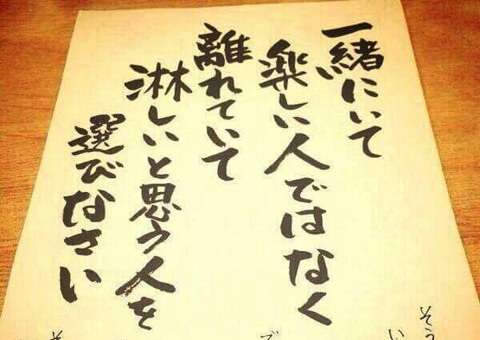 一緒にいて
楽しい人ではなく
離れていて
淋しいと思う人を
選びなさい
そう
い